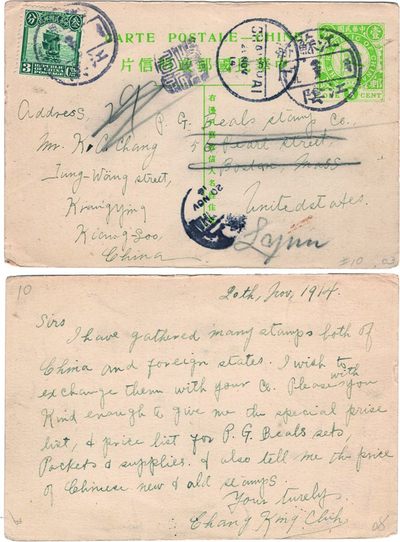 CARTE POSTALE — CHINE
片信郵國民華中
3 CTS
1 CENT
SHANGHAI
21 NOV
江蘇
江陰
右邊祇寫收信人名姓住址
Address,
Mr. K. C. Chang
Tung-Wang street,
Kiangying
Kiang Soo,
China
P. G. Beals Stamp Co.,
Pearl street
Boston, Mass
United states.
Lynn
20 NOV
10
20th, Nov, 1914.
Sirs
I have gathered many stamps both of
China and foreign states. I wish to
exchange them with your Co. Please with you
Kind enough to give me the special prise
list, & price list for P. G. Beals sets,
Packets & supplies. & also tell me the price
of Chinese new & old stamps.
Your turely.
Chang King Chih